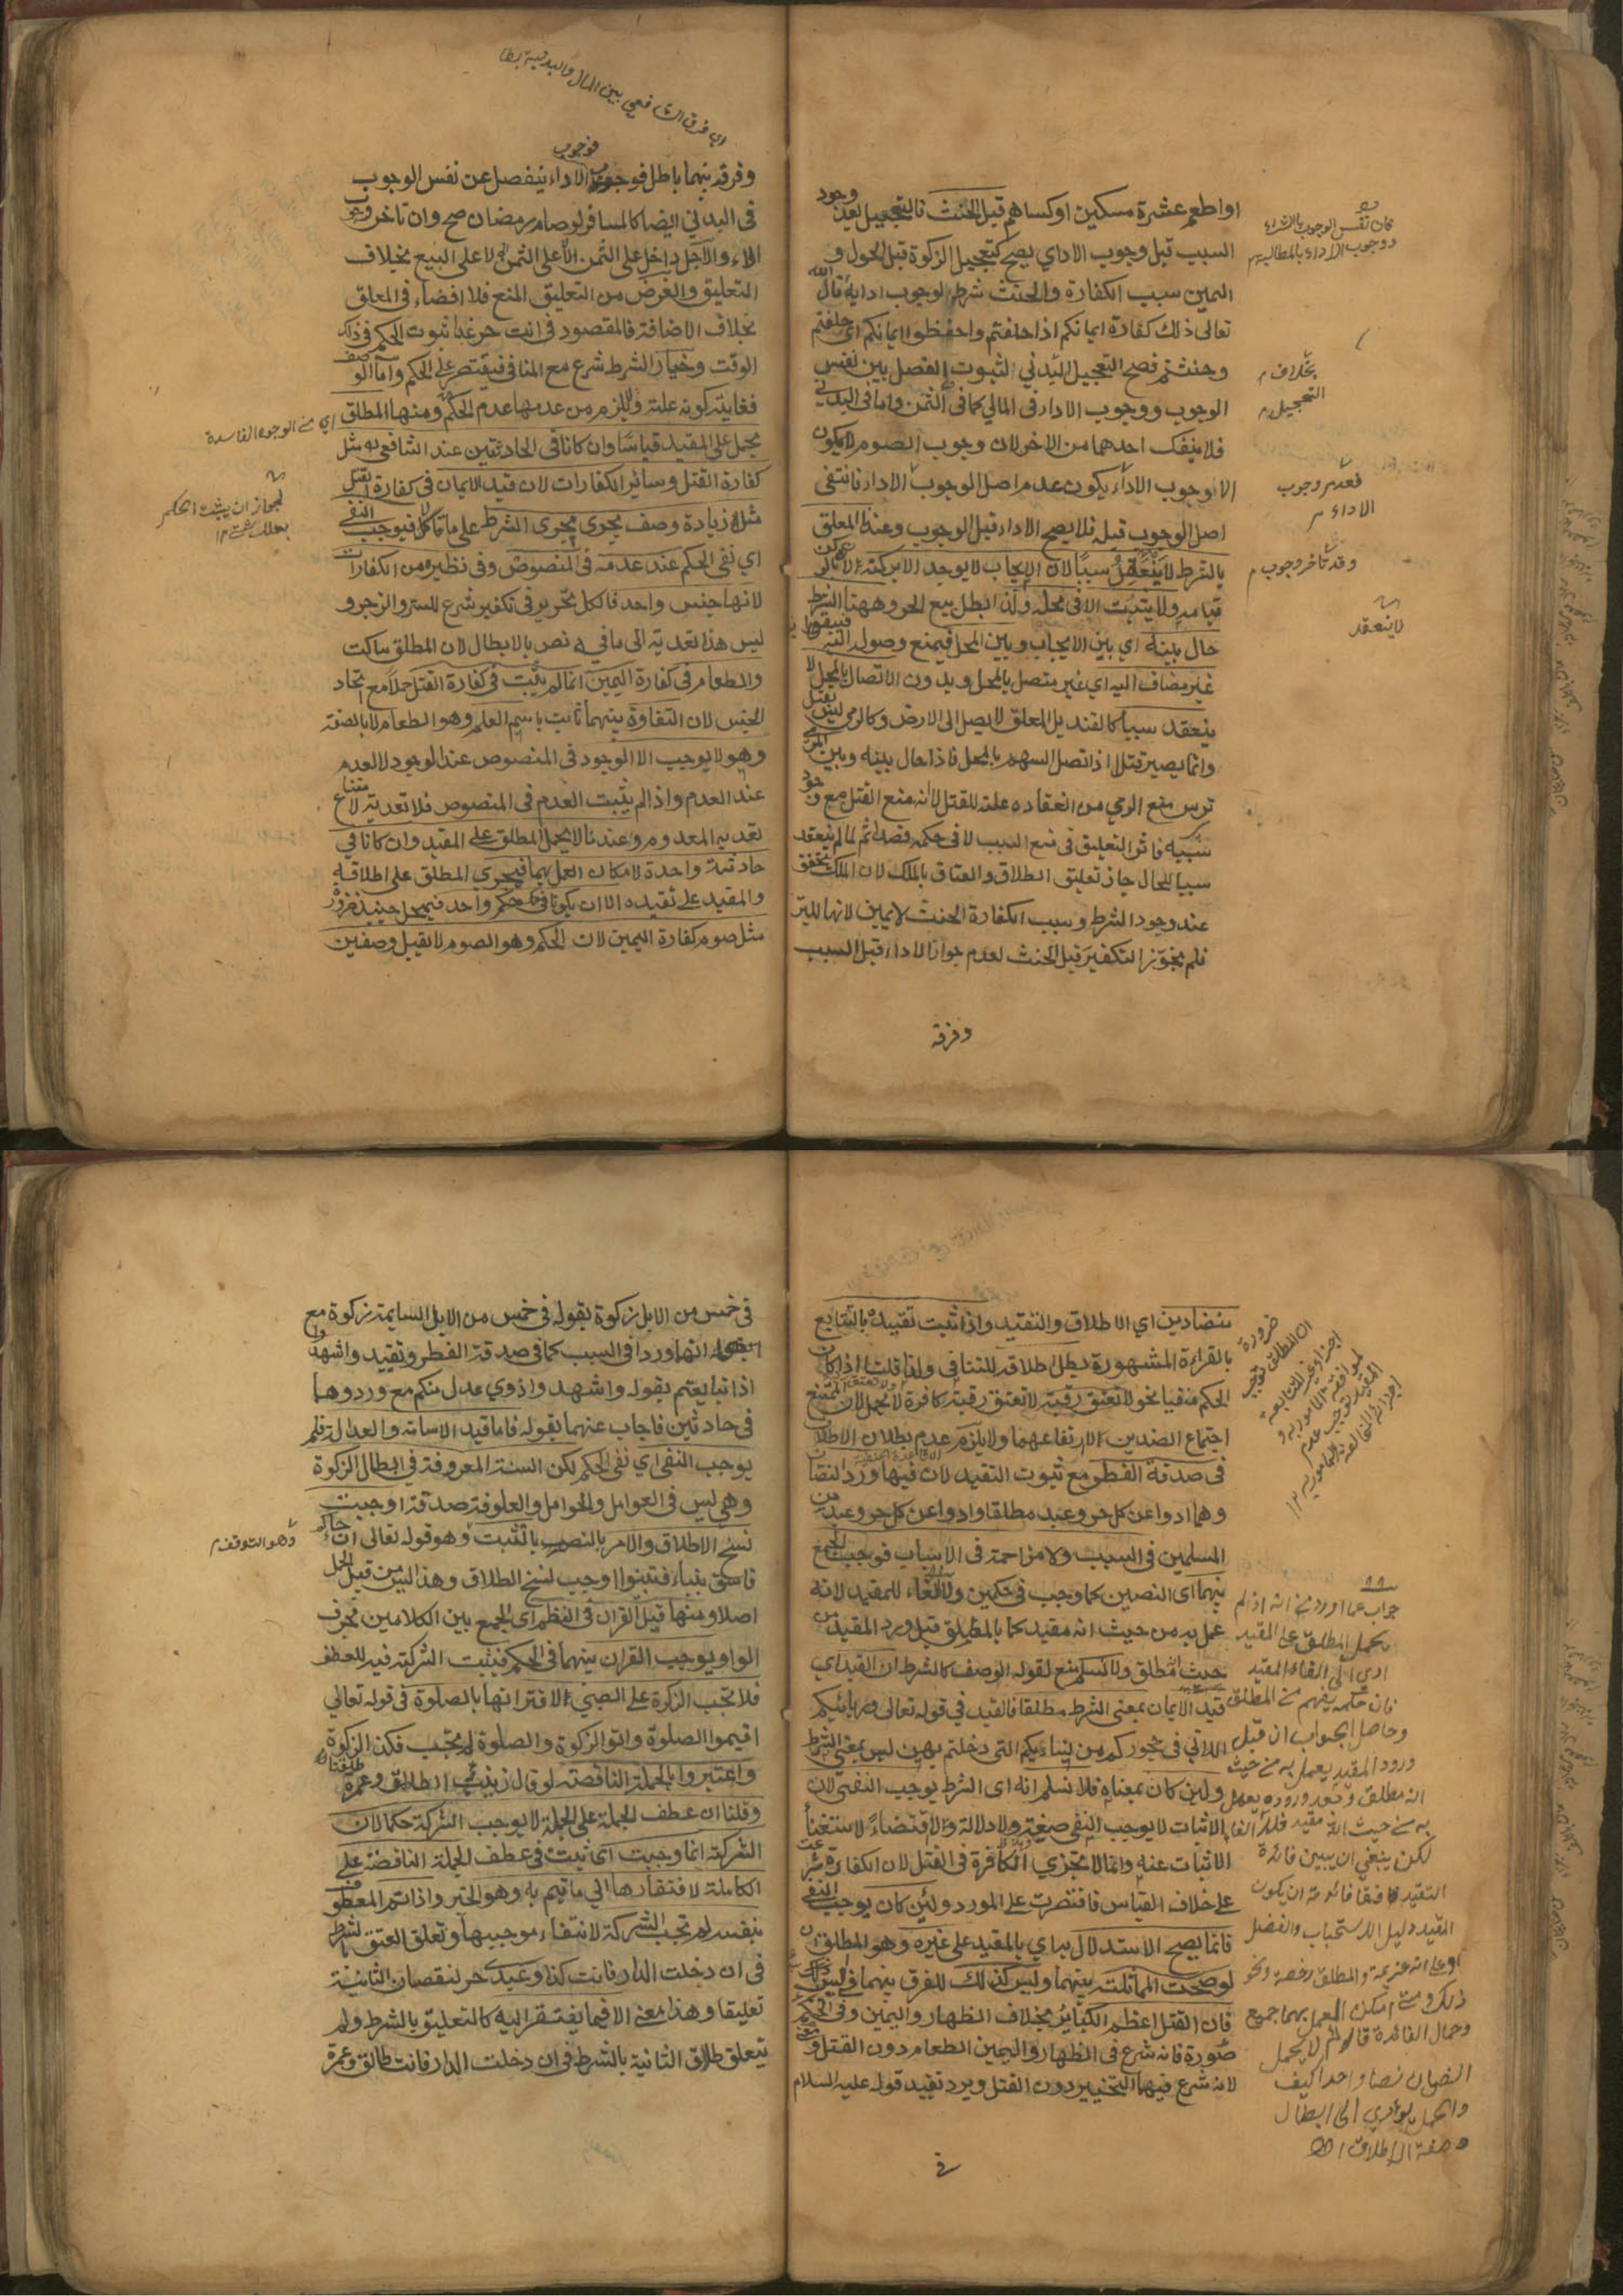 او اطعم عشرة مسكين او كساهم قبل الحنث فالتعجيل بعد وجود
السبب قبل وجوب الاداي يصح كتعجيل الزكوة قبل الحول و
اليمين سبب الكفارة والحنث شرط لوجوب ادايه قال الله
تعالى ذلك كفارة ايمانكم اذا حلفتم واحفظوا ايمانكم اى حلفتم
وحنثتم فصح التعجيل البدني لثبوت الفصل بين نفس
الوجوب ووجوب الاداء في المالي كما في الثمن واما في البدني
فلا ينفك احدهما من الاخر لان وجوب الصوم لا يكون
الا وجوب الاداء يكون عدم اصل الوجوب الاداء فانتفى
اصل الوجوب قبله فلا يصح الاداء قبل الوجوب وعندنا المعلق
بالشرط لا ينعقد سببا لان الايجاب لا يوجد الا بركنه
ولا يثبت الا في محله ولذا ابطل بيع الحر وههنا الشرط
حال بينه اي بين الايجاب وبين المحل فيمنع وصوله اليه فيبقى
غير مضاف اليه اي غير متصل بالمحل وبدون الاتصال بالمحل لا
ينعقد سببا كالقنديل المعلق لا يصل الى الارض وكالرمي ليس بقتل
وانما يصير قتلا اذا تصل السهم بالمحل فاذا حال بينه وبين
ترس منع الرمي من انعقاده علة للقتل لا انه منع القتل مع وجود
سببه فاثر التعليق في منع السبب لا في حكمه قصدا ثم لما لم ينعقد
سببا للحال جاز تعليق الطلاق والعتاق بالملك لان الملك متحقق
عند وجود الشرط وسبب الكفارة الحنث لا يمين لانها للبر
فلم يجوز التكفير قبل الحنث لعدم جواز الاداء قبل السبب
وفرقه
فان نفس الوجوب بالشراء
ووجوب الاداء بالمطالبة
بخلاف
التعجيل
فعدم وجوب
الاداء
وقد تاخر وجوب
لا ينعقد
اي فرق الشافعي بين المال والبدنية بطا
فوجوب
وفرقه بينهما باطل فوجوب الاداء ينفصل عن نفس الوجوب
في البدني ايضا كالمسافر لو صام رمضان صح وان تاخر وجوب
الاداء والاجل داخل على الثمن لا على البيع بخلاف
التعليق والغرض من التعليق المنع فلا افضاء في المعلق
بخلاف الاضافة فالمقصود في انت حر غدا ثبوت الحكم في ذلك
الوقت وخيار الشرط شرع مع المنافي فيقتصر على الحكم واما الوصف
فغايته كونه علة ولا يلزم من عدمها عدم الحكم ومنها المطلق
يحمل على المقيد قياسا وان كانا في الحادثتين عند الشافعي مثل
كفارة القتل وسائر الكفارات لان قيد الايمان في كفارة القتل
مثلا زيادة وصف يجرى مجرى الشرط على ما قلنا فيوجب النفى
اي نفى الحكم عند عدمه في المنصوص وفي نظيره من الكفارات
لانها جنس واحد فالكل تحرير في تكفير شرع للستر والزجر و
ليس هذا تعدية الى ما فيه نص بالابطال لان المطلق ساكت
والطعام في كفارة اليمين انما لم يثبت في كفارة القتل حملا مع اتحاد
الجنس لان التفاوة بينهما ثابت باسم العلم وهو الطعام لا بالصفة
وهو لا يوجب الا الوجود في المنصوص عند الوجود لا العدم
عند العدم واذا لم يثبت العدم في المنصوص فلا تعدية لامتناع
تعدية المعدوم وعندنا لا يحمل المطلق على المقيد وان كانا في
حادثة واحدة لامكان العمل بهما فيجرى المطلق على اطلاقه
والمقيد على تقييده الا ان يكونا في حكم واحد فيحمل حينئذ ضرورة
مثل صوم كفارة اليمين لان الحكم وهو الصوم لا يقبل وصفين
اي من الوجوه الفاسدة
لجواز ان يثبت الحكم
بعلل شتى ١٢
متضادين اي الاطلاق والتقييد واذا ثبت تقييده بالتتابع
بالقراءة المشهورة بطل اطلاقه للتنافي ولذا قلت اذا كان
الحكم منفيا نحو لا تعتق رقبة لا تعتق رقبة كافرة لا يحمل لان الممتنع
اجتماع الضدين لا ارتفاعهما ولا يلزم عدم بطلان الاطلاق
في صدقة الفطر مع ثبوت التقييد لان فيها ورد النصان
وهما ادوا عن كل حر وعبد مطلقا وادوا عن كل حر وعبد من
المسلمين في السبب ولا مزاحمة في الاسباب فوجب الجمع
بينهما اى النصين كما وجب في حكمين ولا الغاء للمقيد لانه
عمل به من حيث انه مقيد كما بالمطلق قبل ورد المقيد من
حيث انه مطلق ولا نسلم منع لقوله الوصف كالشرط ان القيد اي
قيد الايمان بمعنى الشرط مطلقا فالقيد في قوله تعالى وربائبكم
اللاتي في حجوركم من نسائكم التي دخلتم بهن ليس بمعنى الشرط
ولئن كان بمعناه فلا نسلم انه اى الشرط يوجب النفي لان
الاثبات لا يوجب النفى صيغة ولا دلالة ولا اقتضاء لاستغناء
الاثبات عنه وانما لا تجزي الكافرة في القتل لان الكفارة شرعت
على خلاف القياس فاقتصرت على المورد ولئن كان يوجب النفى
فانما يصح الاستدلال به اي بالمقيد على غيره وهو المطلق ان
لو صحت المماثلة بينهما وليس كذلك للفرق بينهما في السبب
فان القتل اعظم الكبائر بخلاف الظهار واليمين وفي الحكم
صورة فانه شرع في الظهار واليمين الطعام دون القتل و معنى
لانه شرع فيهما التخيير دون القتل ويرد تقييد قوله عليه السلام
في
ضرورة
ان المطلق يوجب
اجزاء غير المتتابعة
لموافقة المامور به و
المقيد يوجب عدم
اجزائه لمخالفة المامور به ١٢
جواب عما اورد من انه اذا لم
يحمل المطلق على المقيد
ادى الى الغاء المقيد
فان حكمه يفهم من المطلق
وحاصل الجواب ان قبل
ورود المقيد يعمل به من حيث
انه مطلق وبعد وروده يعمل
به من حيث انه مقيد فلا الغاء
لكن ينبغي ان يبين فائدة
التقييد فائدته ان يكون
المقيد دليل الاستحباب والفضل
او على انه عزيمة والمطلق رخصة ونحو
ذلك ومتى امكن العمل بهما جميع
وحمال الفائدة لم لا يحمل
النصان نصا واحدا كيف
والحمل يؤدي الى ابطال
صفة الاطلاق
في خمس من الابل زكوة بقوله في خمس من الابل السايمة زكوة مع
انهما وردا في السبب كما في صدقة الفطر وتقييد واشهدوا
اذا تبايعتم بقوله واشهدوا ذوي عدل منكم مع ورودهما
في حادثين فاجاب عنهما بقوله فاما قيد الاسامة والعدالة فلم
يوجب النفى اي نفى الحكم لكن السنة المعروفة في ابطال الزكوة
وهي ليس في العوامل والحوامل والعلوفة صدقة اوجبت
نسخ الاطلاق والامر بالتثبت وهو قوله تعالى ان جاءكم
فاسق بنباء فتبينوا اوجب نسخ الطلاق وهذا ليس من قبيل الحمل
اصلا ومنها قيل القران في النظم اى الجمع بين الكلامين بحرف
الواو يوجب القران بينهما في الحكم فيثبت الشركة فيه للعطف
فلا تجب الزكوة على الصبي لاقترانها بالصلوة في قوله تعالى
اقيموا الصلوة واتوا الزكوة والصلوة لم تجب فكذا الزكوة
واعتبروا بالجملة الناقصة لو قال زينب طالق وعمرة طلقتا
وقلنا ان عطف الجملة على الجملة لا يوجب الشركة حكما لان
الشركة انما وجبت اى ثبتت في عطف الجملة الناقصة على
الكاملة لافتقارها الى ما تتم به وهو الخبر واذا تم المعطوف
بنفسه لم تجب الشركة لانتفاء موجبها وتعلق العتق بالشرط
في ان دخلت الدار فانت كذا وعبدي حر لنقصان الثانية
تعليقا وهذا معنى الا فيما يفتقر اليه كالتعليق بالشرط ولم
يتعلق طلاق الثانية بالشرط في ان دخلت الدار فانت طالق وعمرة
وهو التوقف